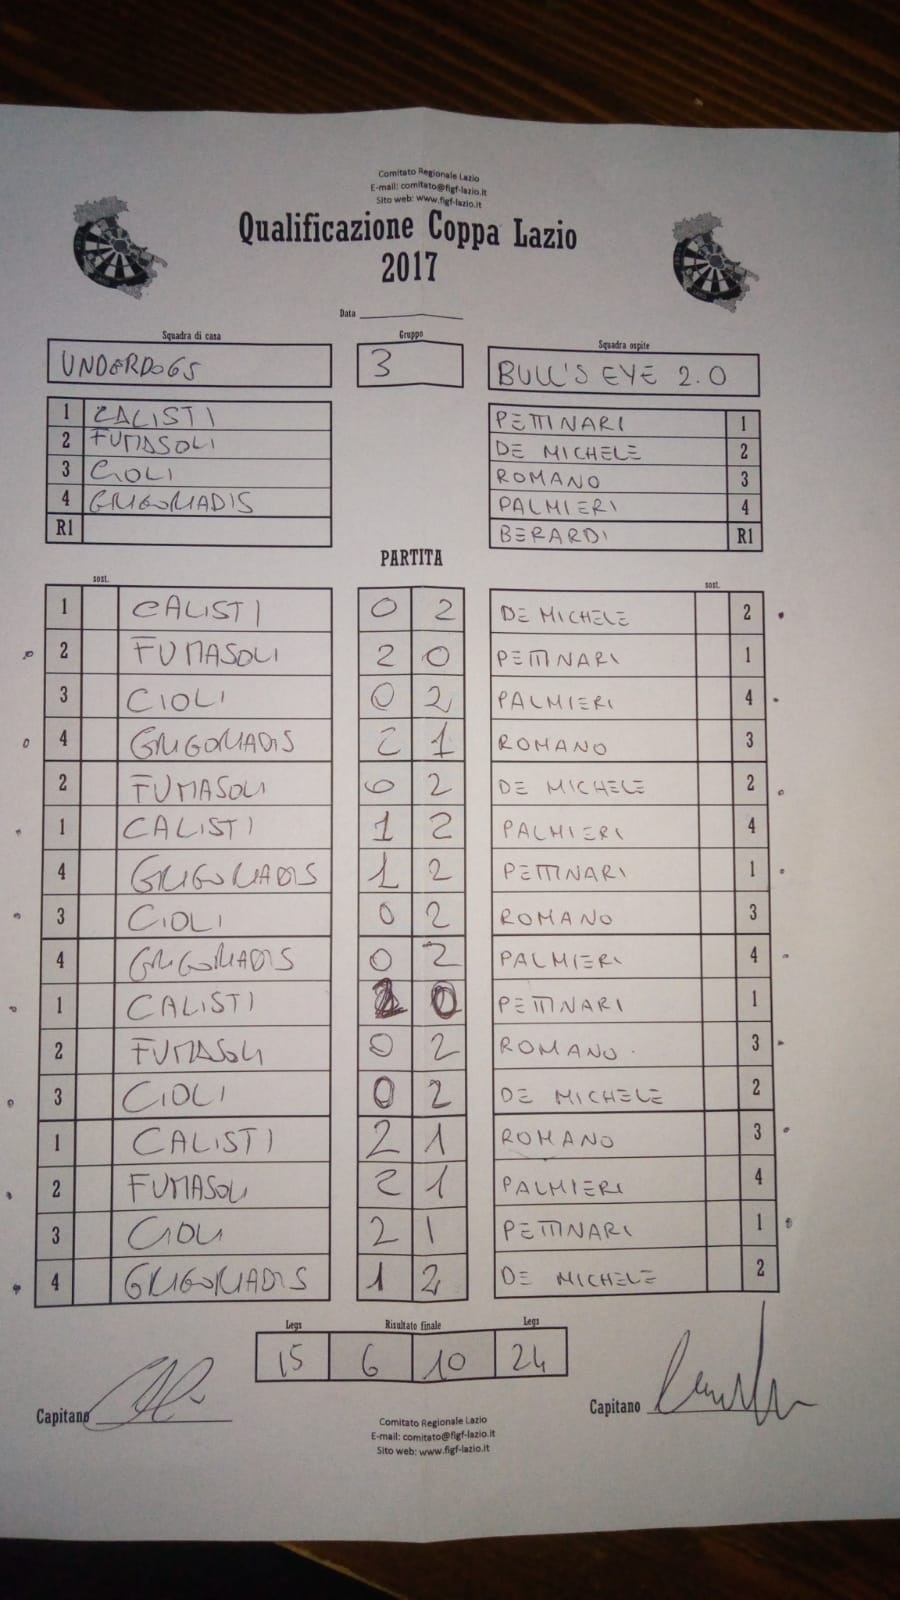 Comitato Regionale Lazio
E-mail: comitato@figf-lazio.it
Sito web: www.figf-lazio.it
Qualificazione Coppa Lazio
2017
Data
Squadra di casa Gruppo Squadra ospite
UNDERDOGS 3 BULL'S EYE 2.0
1 CALISTI PETTINARI 1
2 FUMASOLI DE MICHELE 2
3 CIOLI ROMANO 3
4 GRIGORIADIS PALMIERI 4
R1 BERARDI R1
PARTITA
sost. sost.
1 CALISTI 0 2 DE MICHELE 2
2 FUMASOLI 2 0 PETTINARI 1
3 CIOLI 0 2 PALMIERI 4
4 GRIGORIADIS 2 1 ROMANO 3
2 FUMASOLI 0 2 DE MICHELE 2
1 CALISTI 1 2 PALMIERI 4
4 GRIGORIADIS 1 2 PETTINARI 1
3 CIOLI 0 2 ROMANO 3
4 GRIGORIADIS 0 2 PALMIERI 4
1 CALISTI 2 0 PETTINARI 1
2 FUMASOLI 0 2 ROMANO 3
3 CIOLI 0 2 DE MICHELE 2
1 CALISTI 2 1 ROMANO 3
2 FUMASOLI 2 1 PALMIERI 4
3 CIOLI 2 1 PETTINARI 1
4 GRIGORIADIS 1 2 DE MICHELE 2
Legs Risultato finale Legs
15 6 10 24
Capitano Capitano
Comitato Regionale Lazio
E-mail: comitato@figf-lazio.it
Sito web: www.figf-lazio.it